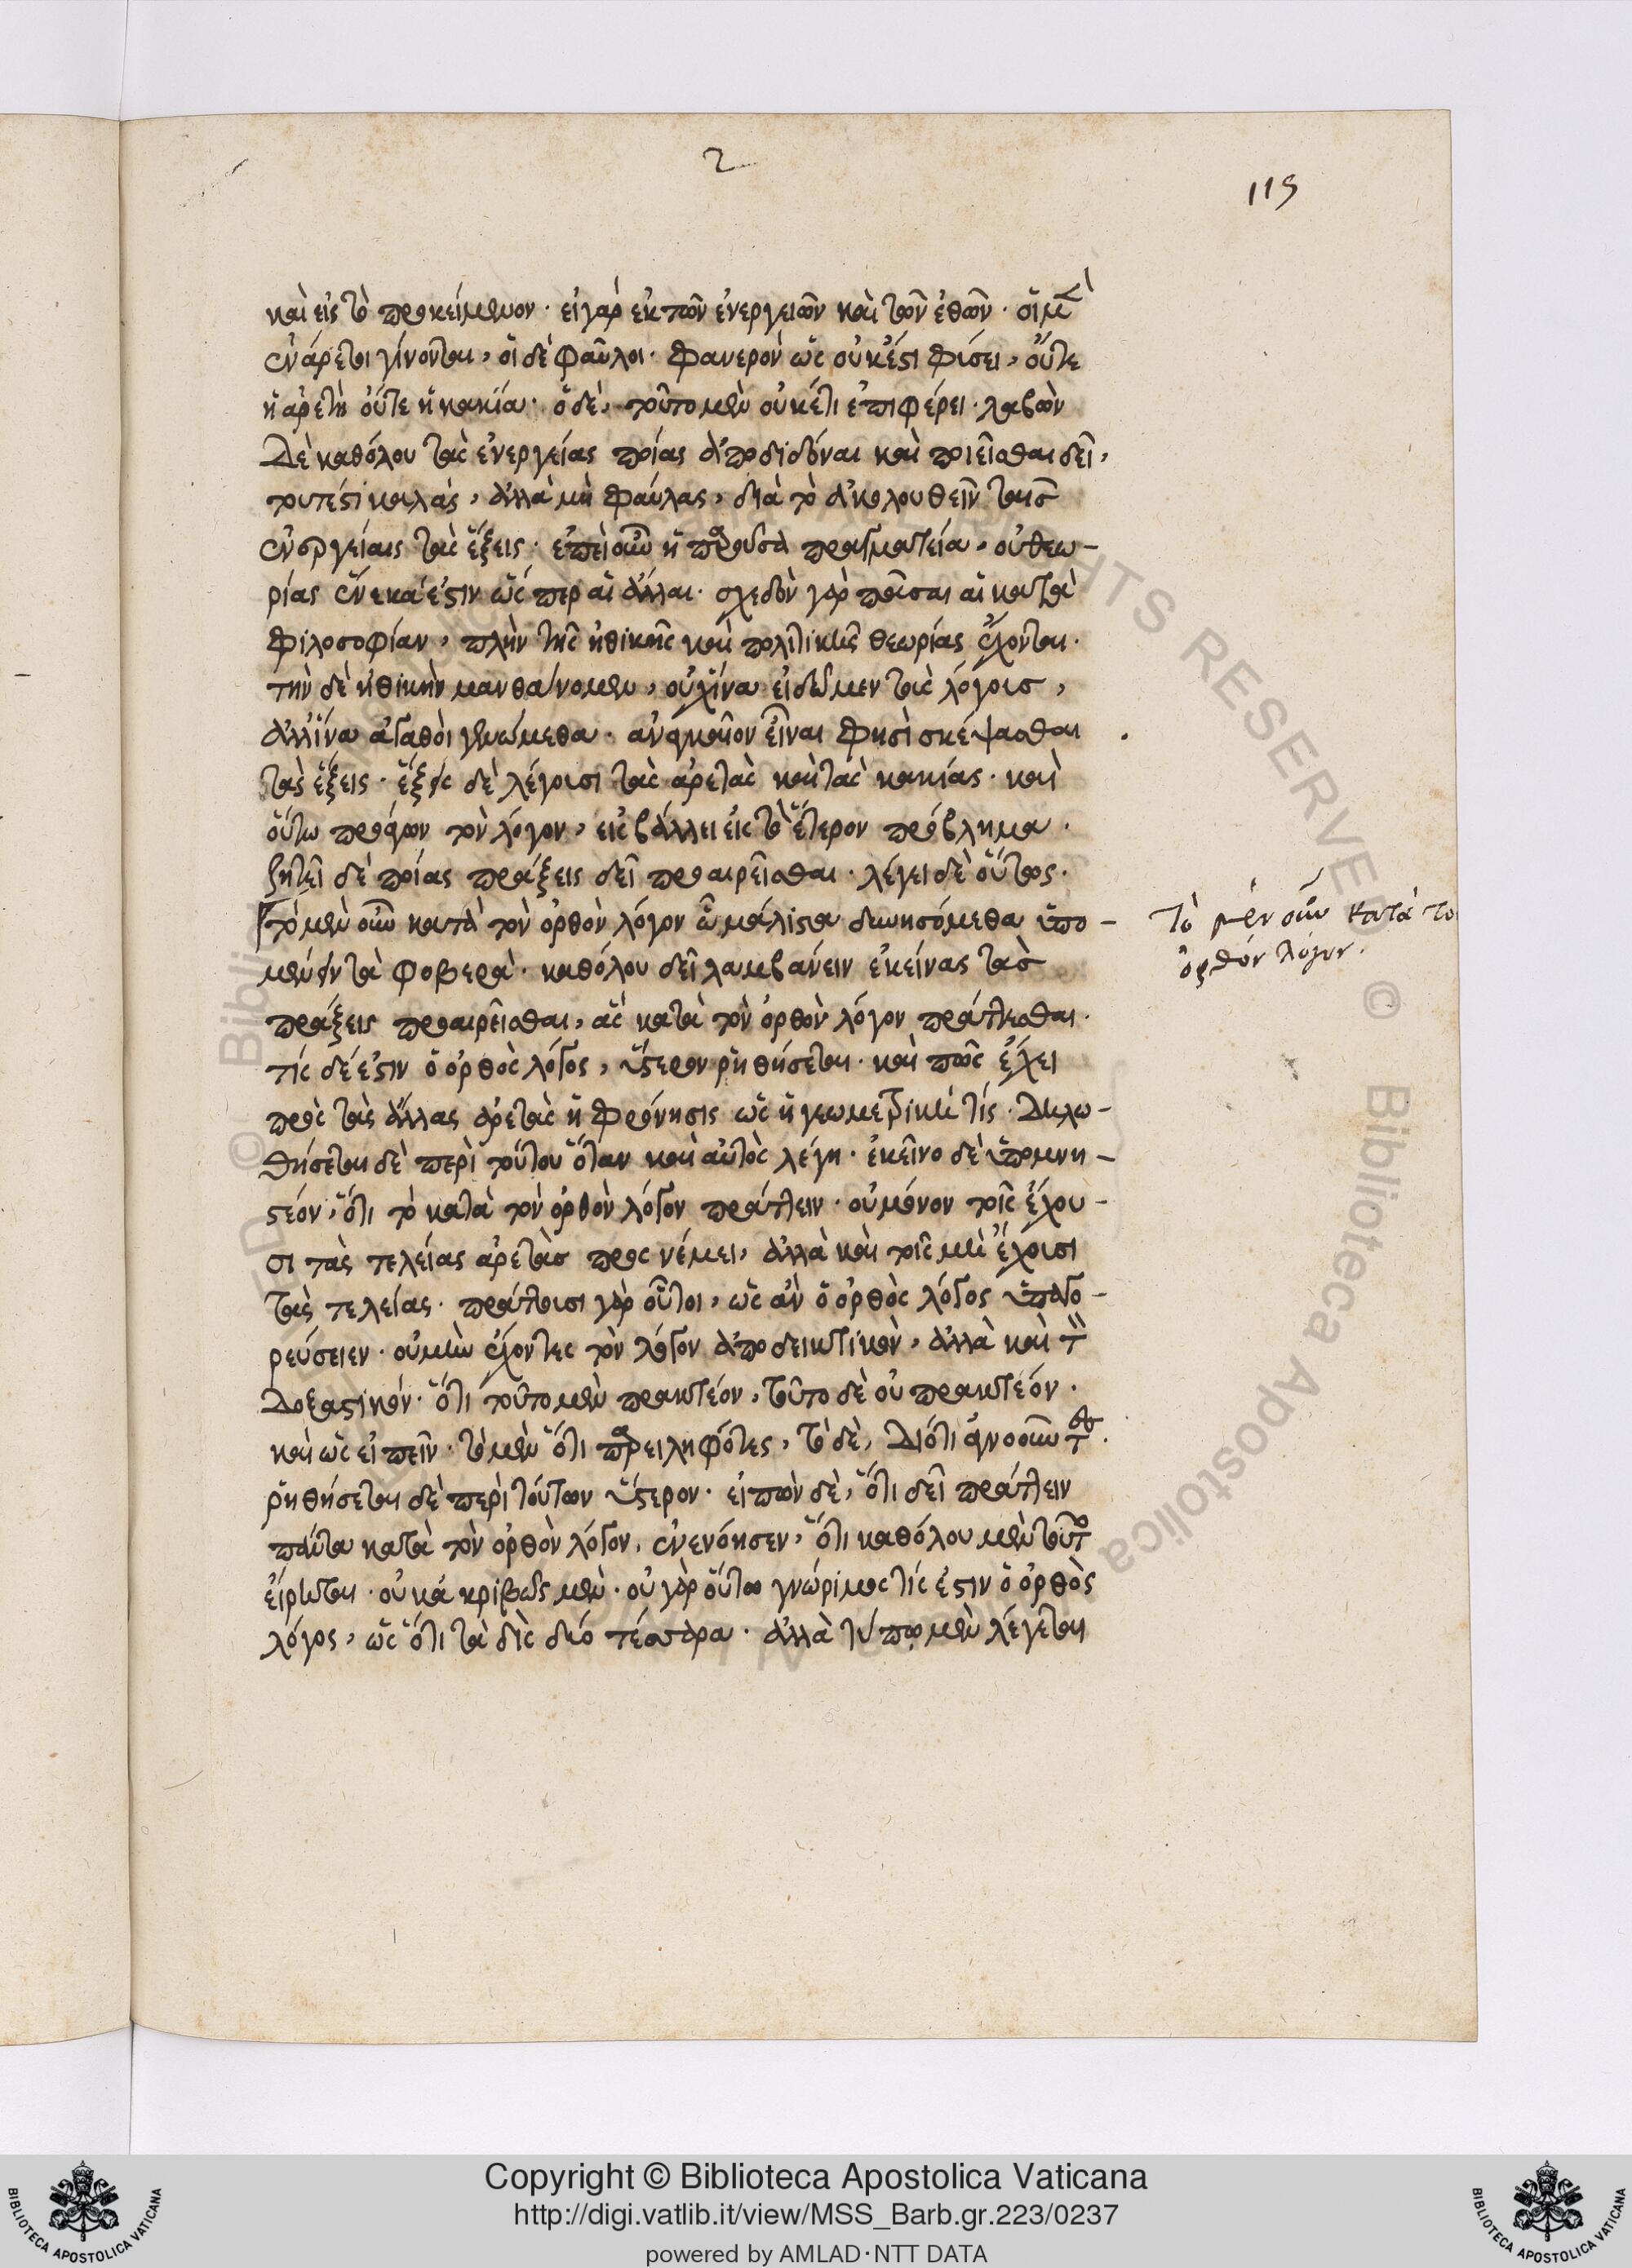 2
115
καὶ εἰς τὸ προκείμενον· εἰ γὰρ ἐκ τῶν ἐνεργειῶν καὶ τῶν ἐθῶν· οἱ μὲν
ἐνάρετοι γίνονται, οἱ δὲ φαῦλοι· φανερὸν ὡς οὐκ ἔστι φύσει, οὔτε
ἡ ἀρετὴ οὔτε ἡ κακία· ὁ δὲ, τοῦτο μὲν οὐκέτι ἐπιφέρει· λαβὼν
δὲ καθόλου τὰς ἐνεργείας ποίας ἀποδιδόναι καὶ ποιεῖσθαι δεῖ,
τουτέστι καλὰς, ἀλλὰ μὴ φαύλας, διὰ τὸ ἀκολουθεῖν ταῖσ
ἐνεργείαις τὰς ἕξεις· ἐπεὶ οὖν ἡ παροῦσα πραγματεία, οὐ θεω-
ρίας ἕνεκά ἐστιν ὥσπερ αἱ ἄλλαι· σχεδὸν γὰρ πᾶσαι αἱ κατὰ
φιλοσοφίαν, πλὴν τῆς ἠθικῆς καὶ πολιτικῆς θεωρίας ἔχονται·
τὴν δὲ ἠθικὴν μανθάνομεν, οὐχ ἵνα εἰδῶμεν τοὺς λόγουσ,
ἀλλ' ἵνα ἀγαθοὶ γενώμεθα· ἀναγκαῖον εἶναι φησὶ σκέψασθαι
τὰς ἕξεις· ἕξεις δὲ λέγουσι τὰς ἀρετὰς καὶ τὰς κακίας· καὶ
οὕτω προάγων τὸν λόγον, εἰσβάλλει εἰς τὸ ἕτερον πρόβλημα·
ζητεῖ δὲ ποίας πράξεις δεῖ προαιρεῖσθαι· λέγει δὲ οὕτως·
τὸ μὲν οὖν κατὰ τὸν ὀρθὸν λόγον ᾧ μάλιστα δυνησόμεθα ὑπο-
μένειν τὰ φοβερά· καθόλου δεῖ λαμβάνειν ἐκείνας τὰσ
πράξεις προαιρεῖσθαι, ἃς κατὰ τὸν ὀρθὸν λόγον πράττεσθαι·
τίς δέ ἐστιν ὁ ὀρθὸς λόγος, ὕστερον ῥηθήσεται· καὶ πῶς ἔχει
πρὸς τὰς ἄλλας ἀρετὰς ἡ φρόνησις ὡς ἡ γεωμετρική τίς· δηλω-
θήσεται δὲ περὶ τούτου ὅταν καὶ αὐτὸς λέγη· ἐκεῖνο δὲ ὑπομνη-
στέον, ὅτι τὸ κατὰ τὸν ὀρθὸν λόγον πράττειν· οὐ μόνον τοῖς ἔχου-
σι τὰς τελείας ἀρετὰσ προσνέμει, ἀλλὰ καὶ τοῖς μὴ ἔχουσι
τὰς τελείας· πράττουσι γὰρ οὗτοι, ὡς ἂν ὁ ὀρθὸς λόγος ὑπαγο-
ρεύσειεν· οὐ μὴν ἔχοντες τὸν λόγον ἀποδεικτικὸν, ἀλλὰ καὶ τὸν
δοξαστικόν· ὅτι τοῦτο μὲν πρακτέον, τοῦτο δὲ οὐ πρακτέον·
καὶ ὡς εἰπεῖν· τὸ μὲν ὅτι παρειληφότες, τὸ δὲ, διότι ἀγνοοῦντες·
ῥηθήσεται δὲ περὶ τούτων ὕστερον· εἰπὼν δὲ, ὅτι δεῖ πράττειν
πάντα κατὰ τὸν ὀρθὸν λόγον, ἐνενόησεν, ὅτι καθόλου μὲν τοῦτο
εἴρηται· οὐκ ἀκριβῶς μὲν· οὐ γὰρ οὕτω γνώριμος τίς ἐστιν ὁ ὀρθὸς
λόγος, ὡς ὅτι τὰ δὶς δύο τέσσαρα· ἀλλὰ τύπῳ μὲν λέγεται
Τὸ μὲν οὖν κατὰ το
ὀρθὸν λόγον.
Copyright © Biblioteca Apostolica Vaticana
http://digi.vatlib.it/view/MSS_Barb.gr.223/0237
powered by AMLAD·NTT DATA
BIBLIOTECA APOSTOLICA VATICANA
BIBLIOTECA APOSTOLICA VATICANA